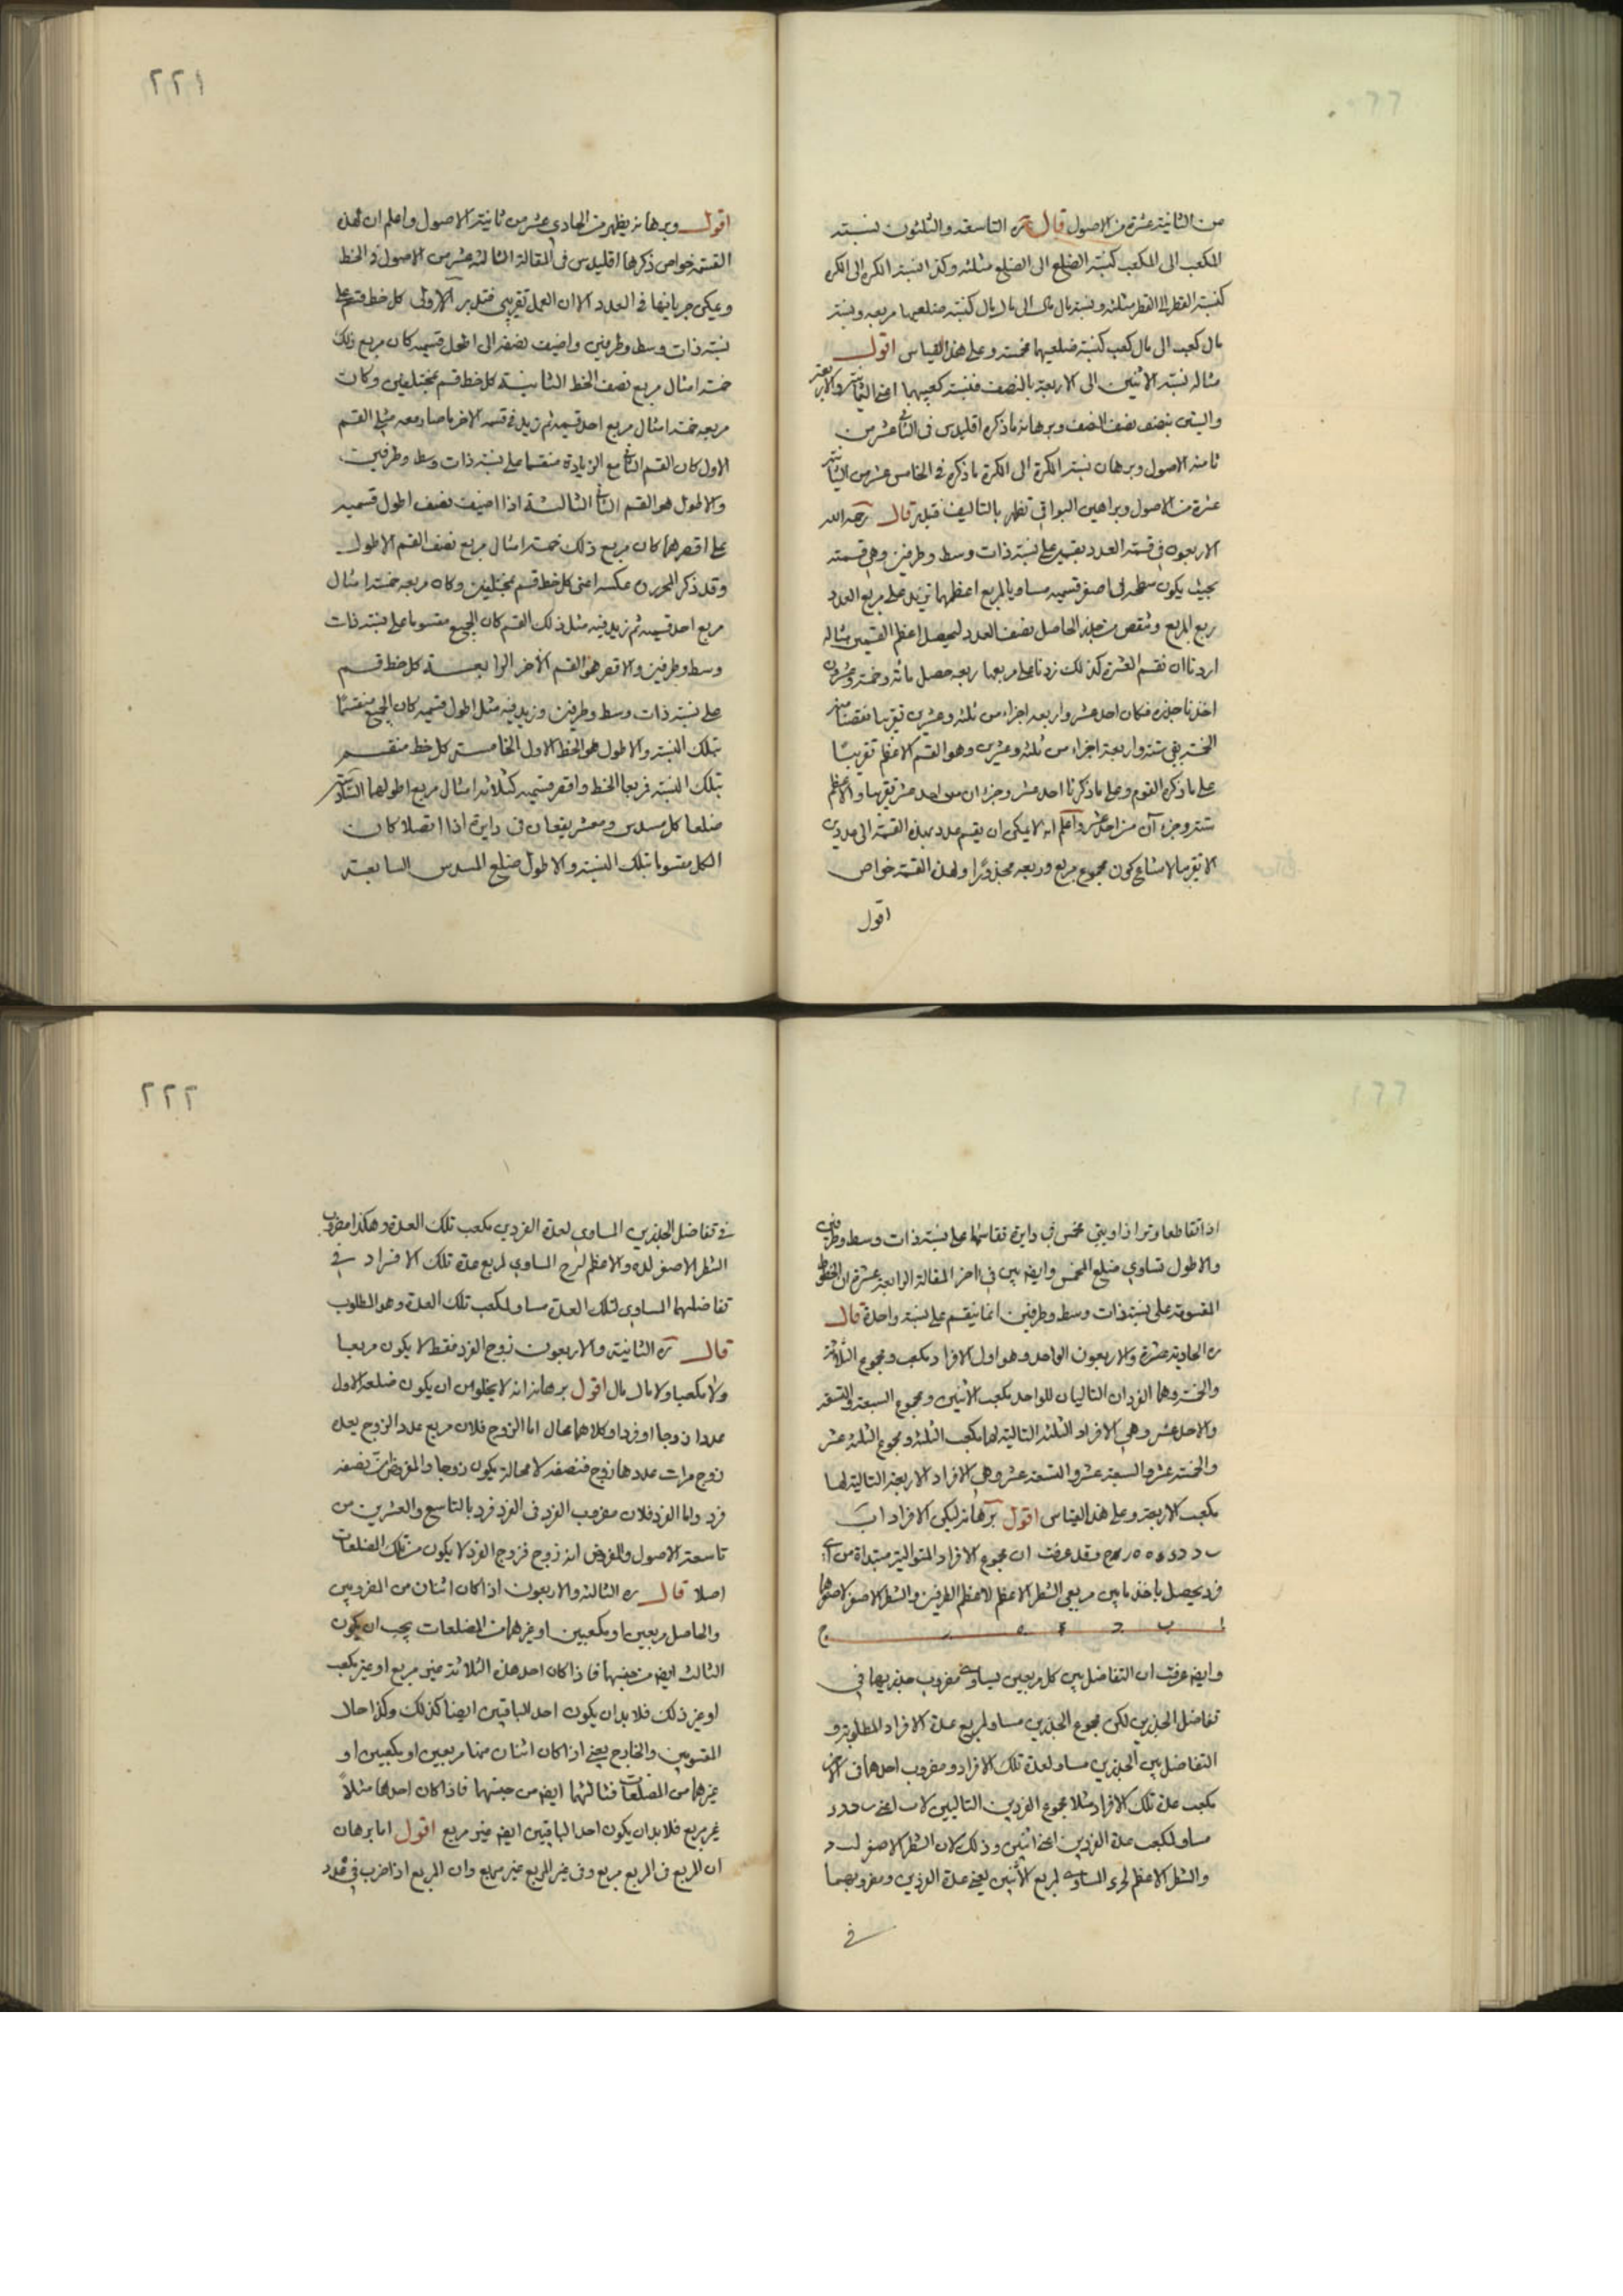 من الثانية عشرة من الاصول قال ره التاسعة والثلثون نسبة
المكعب الى المكعب كنسبة الضلع الى الضلع مثلثه وكذا نسبة الكرة الى الكرة
كنسبة القطر الى القطر مثلثه ونسبة مال مال الى مال مال كنسبة ضلعيهما مربعه ونسبة
مال كعب الى مال كعب كنسبة ضلعيهما مخمسة وعلى هذا القياس اقول
مثاله نسبة الاثنين الى الاربعة بالنصف فنسبة كعبيهما اعنى الثمانية والاربعة
والستين بنصف نصف النصف وبرهانه ما ذكره اقليدس فى عشر من
ثامنة الاصول وبرهان نسبة الكرة الى الكرة ما ذكره فى الخامس عشر من الثانية
عشرة من الاصول وبراهين البواقى تظهر بالتاليف فتدبر قال رحمه الله
الاربعون فى قسمة العدد بقسمين على نسبة ذات وسط وطرفين وهى قسمته
بحيث يكون سطحه فى اصغر قسميه مساويا لمربع اعظمهما تزيد على مربع العدد
ربع المربع وتنقص من جذر الحاصل نصف العدد ليحصل اعظم القسمين مثاله
اردنا ان نقسم العشرة كذلك زدنا على مربعها ربعه حصل مائة وخمسة وعشرون
اخذنا جذره فكان احد عشر واربعة اجزاء من ثلثة وعشرين تقريبا نقصنا منه
الخمسة بقى ستة واربعة اجزاء من ثلثة وعشرين وهو القسم الاعظم تقريبًا
على ما ذكره القوم وعلى ما ذكرنا احد عشر وجزءان من احد عشر تقريبا والاعظم
ستة وجزءآن من احد عشر واعلم انه لا يمكن ان يقسم عدد بهذه القسمة الى عددين
الا تقريبا لامتناع كون مجموع مربع وربعه مجذورًا ولهذه القسمة خواص
اقول
٢٢١
اقول وبرهانه يظهر من الحادى عشر من ثانية الاصول واعلم ان لهذه
القسمة خواص ذكرها اقليدس فى المقالة الثالثة عشر من الاصول فى الخط
ويمكن جريانها فى العدد الا ان العمل تقريبى فتدبر الاولى كل خط قسم على
نسبة ذات وسط وطرفين واضيف نصفه الى اطول قسميه كان مربع ذلك
خمسة امثال مربع نصف الخط الثانية كل خط قسم بمختلفين وكان
مربعه خمسة امثال مربع احد قسميه ثم زيد فى قسمه الاخر ما صار معه مثلى القسم
الاول كان القسم مع الزيادة منقسما على نسبة ذات وسط وطرفين
والاطول هو القسم الثالثة اذا اضيف نصف اطول قسميه
على اقصرهما كان مربع ذلك خمسة امثال مربع نصف القسم الاطول
وقد ذكر المحررون عكسه اعنى كل خط قسم بمختلفين وكان مربعه خمسة امثال
مربع احد قسميه ثم زيد فيه مثل ذلك القسم كان الجميع مقسوما على نسبة ذات
وسط وطرفين والاقصر هو القسم الاخر الرابعة كل خط قسم
على نسبة ذات وسط وطرفين وزيد فيه مثل اطول قسميه كان الجميع منقسمًا
بتلك النسبة والاطول هو الخط الاول الخامسة كل خط منقسم
بتلك النسبة فربعا الخط واقصر قسميه كثلاثة امثال مربع اطولهما السادسة
ضلعا كل مسدس ومعشر يقعان فى دايرة اذا اتصلا كان
الكل مقسوما بتلك النسبة والاطول ضلع المسدس السابعة
اذا تقاطعا وترا زاويتى مخمس فى دايرة تقاسما على نسبة ذات وسط وطرفين
والاطول تساوى ضلع المخمس وايضا بين فى اخر المقالة الرابعة عشرة ان الخطوط
المقسومة على نسبة ذات وسط وطرفين انما ينقسم على نسبة واحدة قال
ره الحادية عشرة والاربعون الواحد وهو اول الافراد مكعب ومجموع الثلاثة
والخمسة وهما الفردان التاليان للواحد مكعب الاثنين ومجموع السبعة والتسعة
والاحد عشر وهى الافراد الثلثة التالية لها مكعب الثلثة ومجموع الثلثة عشر
والخمسة عشر والسبعة عشر والتسعة عشر وهى الافراد الاربعة التالية لها
مكعب الاربعة وعلى هذا القياس اقول برهانه ليكن الافراد اب
وقد عرفت ان مجموع الافراد المتوالية مبتداة من اى
فرد يحصل باخذ ما بين مربعى الشطر الاعظم لاعظم الطرفين والشطر الاصغر لاصغرهما
ا ب ج د ه ر ح
وايضا عرفت ان التفاضل بين كل مربعين يساوى مضروب جذريهما فى
تفاضل الجذرين لكن مجموع الجذرين مساو لمربع عدة الافراد المطلوبة و
التفاضل بين الجذرين مساو لعدة تلك الافراد ومضروب احدهما فى الاخر
مكعب عدة تلك الافراد مثلا مجموع الفردين التاليين لاب اعنى
مساو لمكعب عدة الفردين اعنى اثنين وذلك لان الشطر الاصغر
والشطر الاعظم المساوى لمربع الاثنين يعنى عدة الفردين ومضروبهما
فى
٢٢٢
فى تفاضل الجذرين المساوى لعدة الفردين مكعب تلك العدة وهكذا مضروب
الشطر الاصغر والاعظم المساوى لمربع عدة تلك الافراد فى
تفاضلهما المساوى لتلك العدة مساو لمكعب تلك العدة وهو المطلوب
قال ره الثانية والاربعون زوج الفرد فقط لا يكون مربعا
ولا مكعبا ولا مال مال اقول برهانه انه لا يخلو من ان يكون ضلعه الاول
عددا زوجا او فردا وكلاهما محال اما الزوج فلان مربع عدد الزوج يعده
زوج مرات عددها زوج فنصفه لا محالة يكون زوجا والمفروض ان نصفه
فرد واما الفرد فلان مضروب الفرد فى الفرد فرد بالتاسع والعشرين من
تاسعة الاصول والمفروض انه زوج فزوج الفرد لا يكون من تلك المضلعات
اصلا قال ره الثالثة والاربعون اذا كان اثنان من المضروبين
والحاصل مربعين او مكعبين او غيرهما من المضلعات يجب ان يكون
الثالث ايضا من جنسهما فاذا كان احد هذه الثلاثة غير مربع او غير مكعب
او غير ذلك فلا بد ان يكون احد الباقيين ايضا كذلك وكذا حال
المقسومين والخارج يعنى اذا كان اثنان منها مربعين او مكعبين او
غيرهما من المضلعات فثالثهما ايضا من جنسهما فاذا كان احدها مثلاً
غير مربع فلا بد ان يكون احد الباقيين ايضا غير مربع اقول اما برهان
ان المربع فى المربع مربع وفى غير المربع غير مربع وان المربع اذا ضرب فى عدد